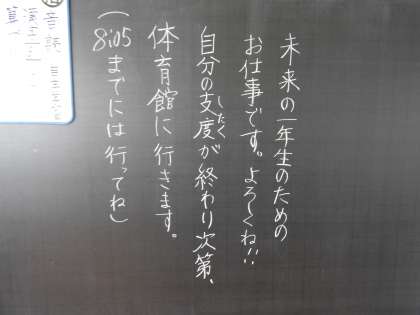 未来の一年生のための
お仕事です。よろしくね!!
自分の支度が終わり次第、
したく
体育館に行きます。
(8:05までには行ってね)